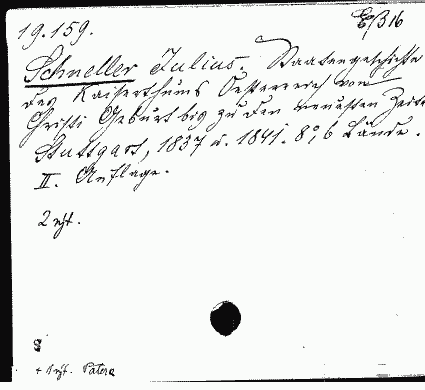 19.159.
Schneller Julius. Staatengeschichte
des Kaiserthums Oesterreich von
Christi Geburt bis zu den neuesten Zeite
Stuttgart, 1837 u. 1841. 8°, 6 Bände.
II. Auflage.
2
8
Patera